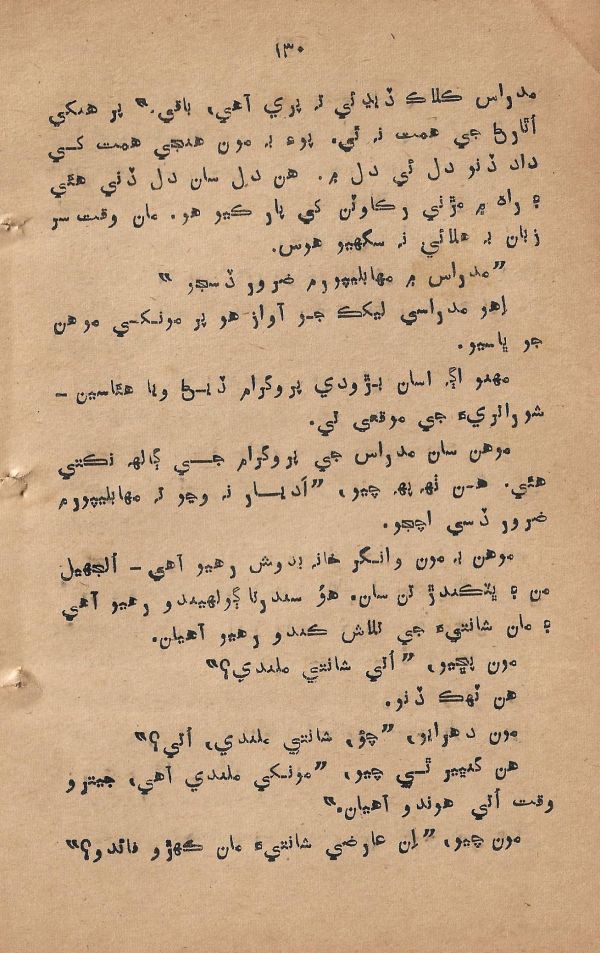 ١٣٠
مدراس ڪلاڪ ڏيڍ ئي تہ پري آهي، باقي.” پر هنکي
اُتارڻ جي همت نہ ٿي. پوءِ بہ مون هنجي همت کي
داد ڏنو دل ئي دل ۾. هن دل سان دل ڏني هئي
۽ راهہ ۾ مڙني رڪاوٽن کي پار ڪيو هو. مان وقت سر
زبان بہ هلائي نہ سگهيو هوس.
”مدراس ۾ مهابليپورم ضرور ڏسجو “
اِهو مدراسي ليکڪ جو آواز هو پر مونکي موهن
جو ڀاسيو.
مهنو اڳ اسان بڙودي پروگرام ڏيڻ ويا هئاسين –
شوراتريءَ جي موقعي تي.
موهن سان مدراس جي پروگرام جي ڳالهہ نڪتي
هئي. هن ٺهہ پهہ چيو، ”اَديار نہ وڃو تہ مهابليپورم
ضرور ڏسي اچجو.
موهن بہ مون وانگر خانہ بدوش رهيو آهي – اُلجهيل
من ۽ ڀٽڪندڙ تن سان. هوُ سندرتا ڳولهيندو رهيو آهي
۽ مان شانتيءَ جي تلاش ڪندو رهيو آهيان.
مون پڇيو، ”اُتي شانتي ملندي؟“
هن ٽهڪ ڏنو.
مون دهرايو، ”چؤ، شانتي ملندي، اُتي؟“
هن گنڀير ٿي چيو، ”مونکي ملندي آهي، جيترو
وقت اُتي هوندو آهيان.“
مون چيو، ”اِن عارضي شانتيءَ مان ڪهڙو فائدو؟“